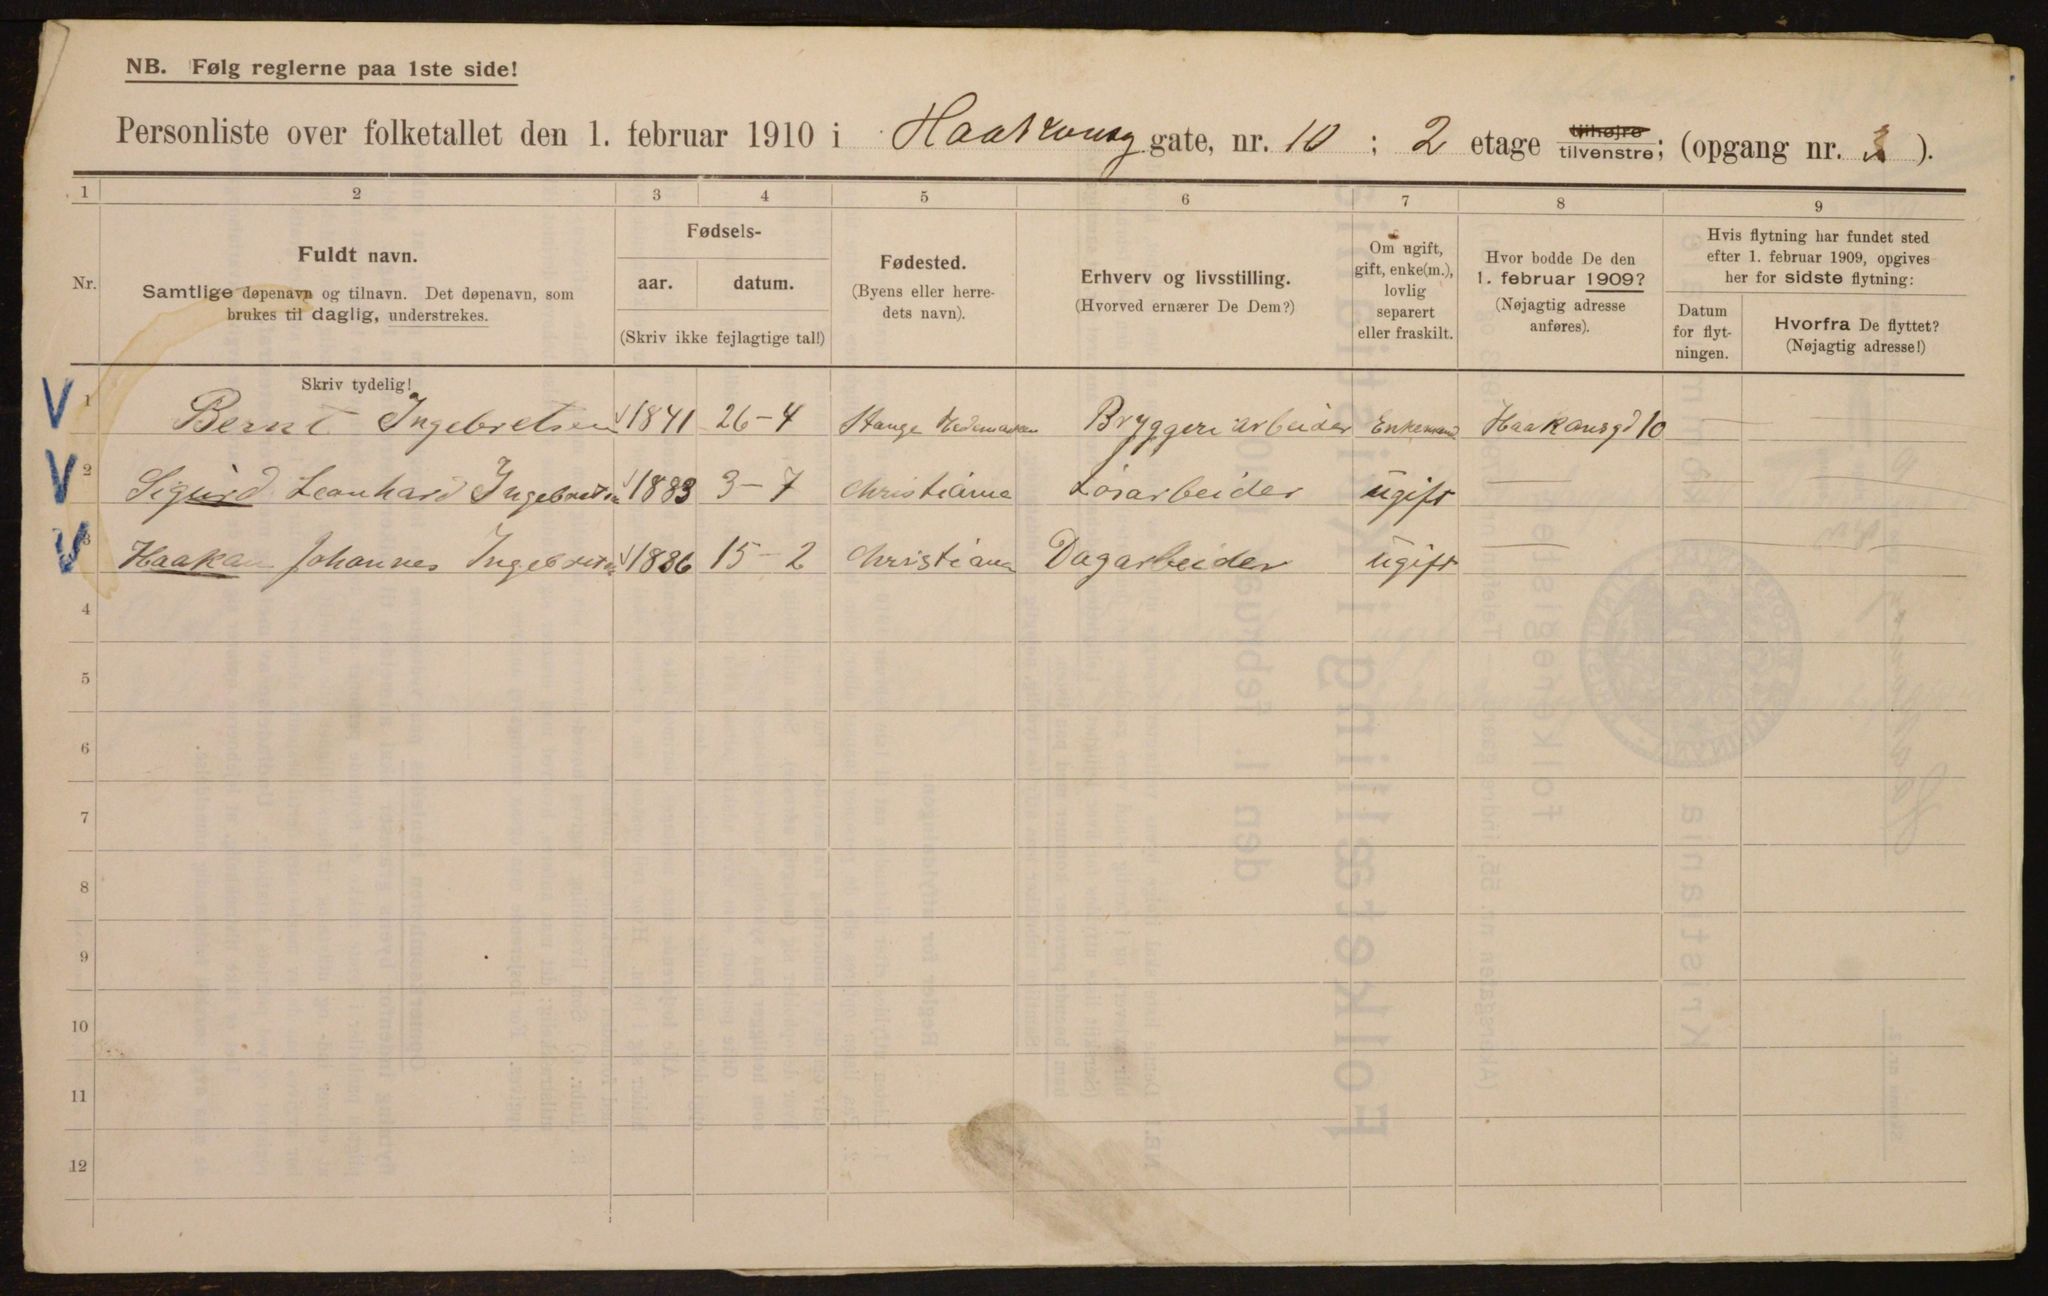 NB. Følg reglerne paa 1ste side!
Personliste over folketallet den 1. februar 1910 i Haakonsg gate, nr. 10 ; 2 etage tilhøjre tilvenstre; (opgang nr. ).
1 2 3 4 5 6 7 8 9
Nr.
Fuldt navn.
Samtlige døpenavn og tilnavn. Det døpenavn, som
brukes til daglig, understrekes.
Fødsels-
aar. datum.
(Skriv ikke fejlagtige tal!)
Fødested.
(Byens eller herre-
dets navn).
Erhverv og livsstilling.
(Hvorved ernærer De Dem?)
Om ugift,
gift, enke(m.),
lovlig
separert
eller fraskilt.
Hvor bodde De den
1. februar 1909?
(Nøjagtig adresse
anføres).
Hvis flytning har fundet sted
efter 1. februar 1909, opgives
her for sidste flytning:
Datum
for flyt-
ningen.
Hvorfra De flyttet?
(Nøjagtig adresse!)
Skriv tydelig!
V 1 Bernt Ingebretsen 1841 26-4 Stange Hedemarken Bryggeriarbeider Enkemand Haakonsgd 10
V 2 Sigurd Leonhard Ingebretsen 1883 3-7 Christiania Løsarbeider ugift —
V 3 Haakan Johannes Ingebretsen 1886 15-2 Christiania Dagarbeider ugift —
4
5
6
7
8
9
10
11
12